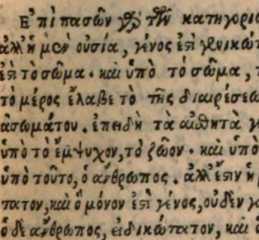 Ἐπὶ πασῶν γὰρ τῶν κατηγορι
ἀλλ' ἡ μὲν οὐσία, γένος ἐστὶ γενικώτ
ἐστὶ τὸ σῶμα· καὶ ὑπὸ τὸ σῶμα,
τὸ μέρος ἔλαβε τὸ τῆς διαιρέσεω
ἀσωμάτου. ἐπειδὴ τὰ αἰσθητὰ
ὑπὸ τὸ ἔμψυχον, τὸ ζῶον· καὶ ὑπὸ
ὑπὸ τοῦτο, ὁ ἄνθρωπος. ἀλλ' ἔστιν ἡ
τατον, καὶ ὃ μόνον ἐστὶ γένος, οὐδὲν
ὁ δὲ ἄνθρωπος, εἰδικώτατον, καὶ ὃ